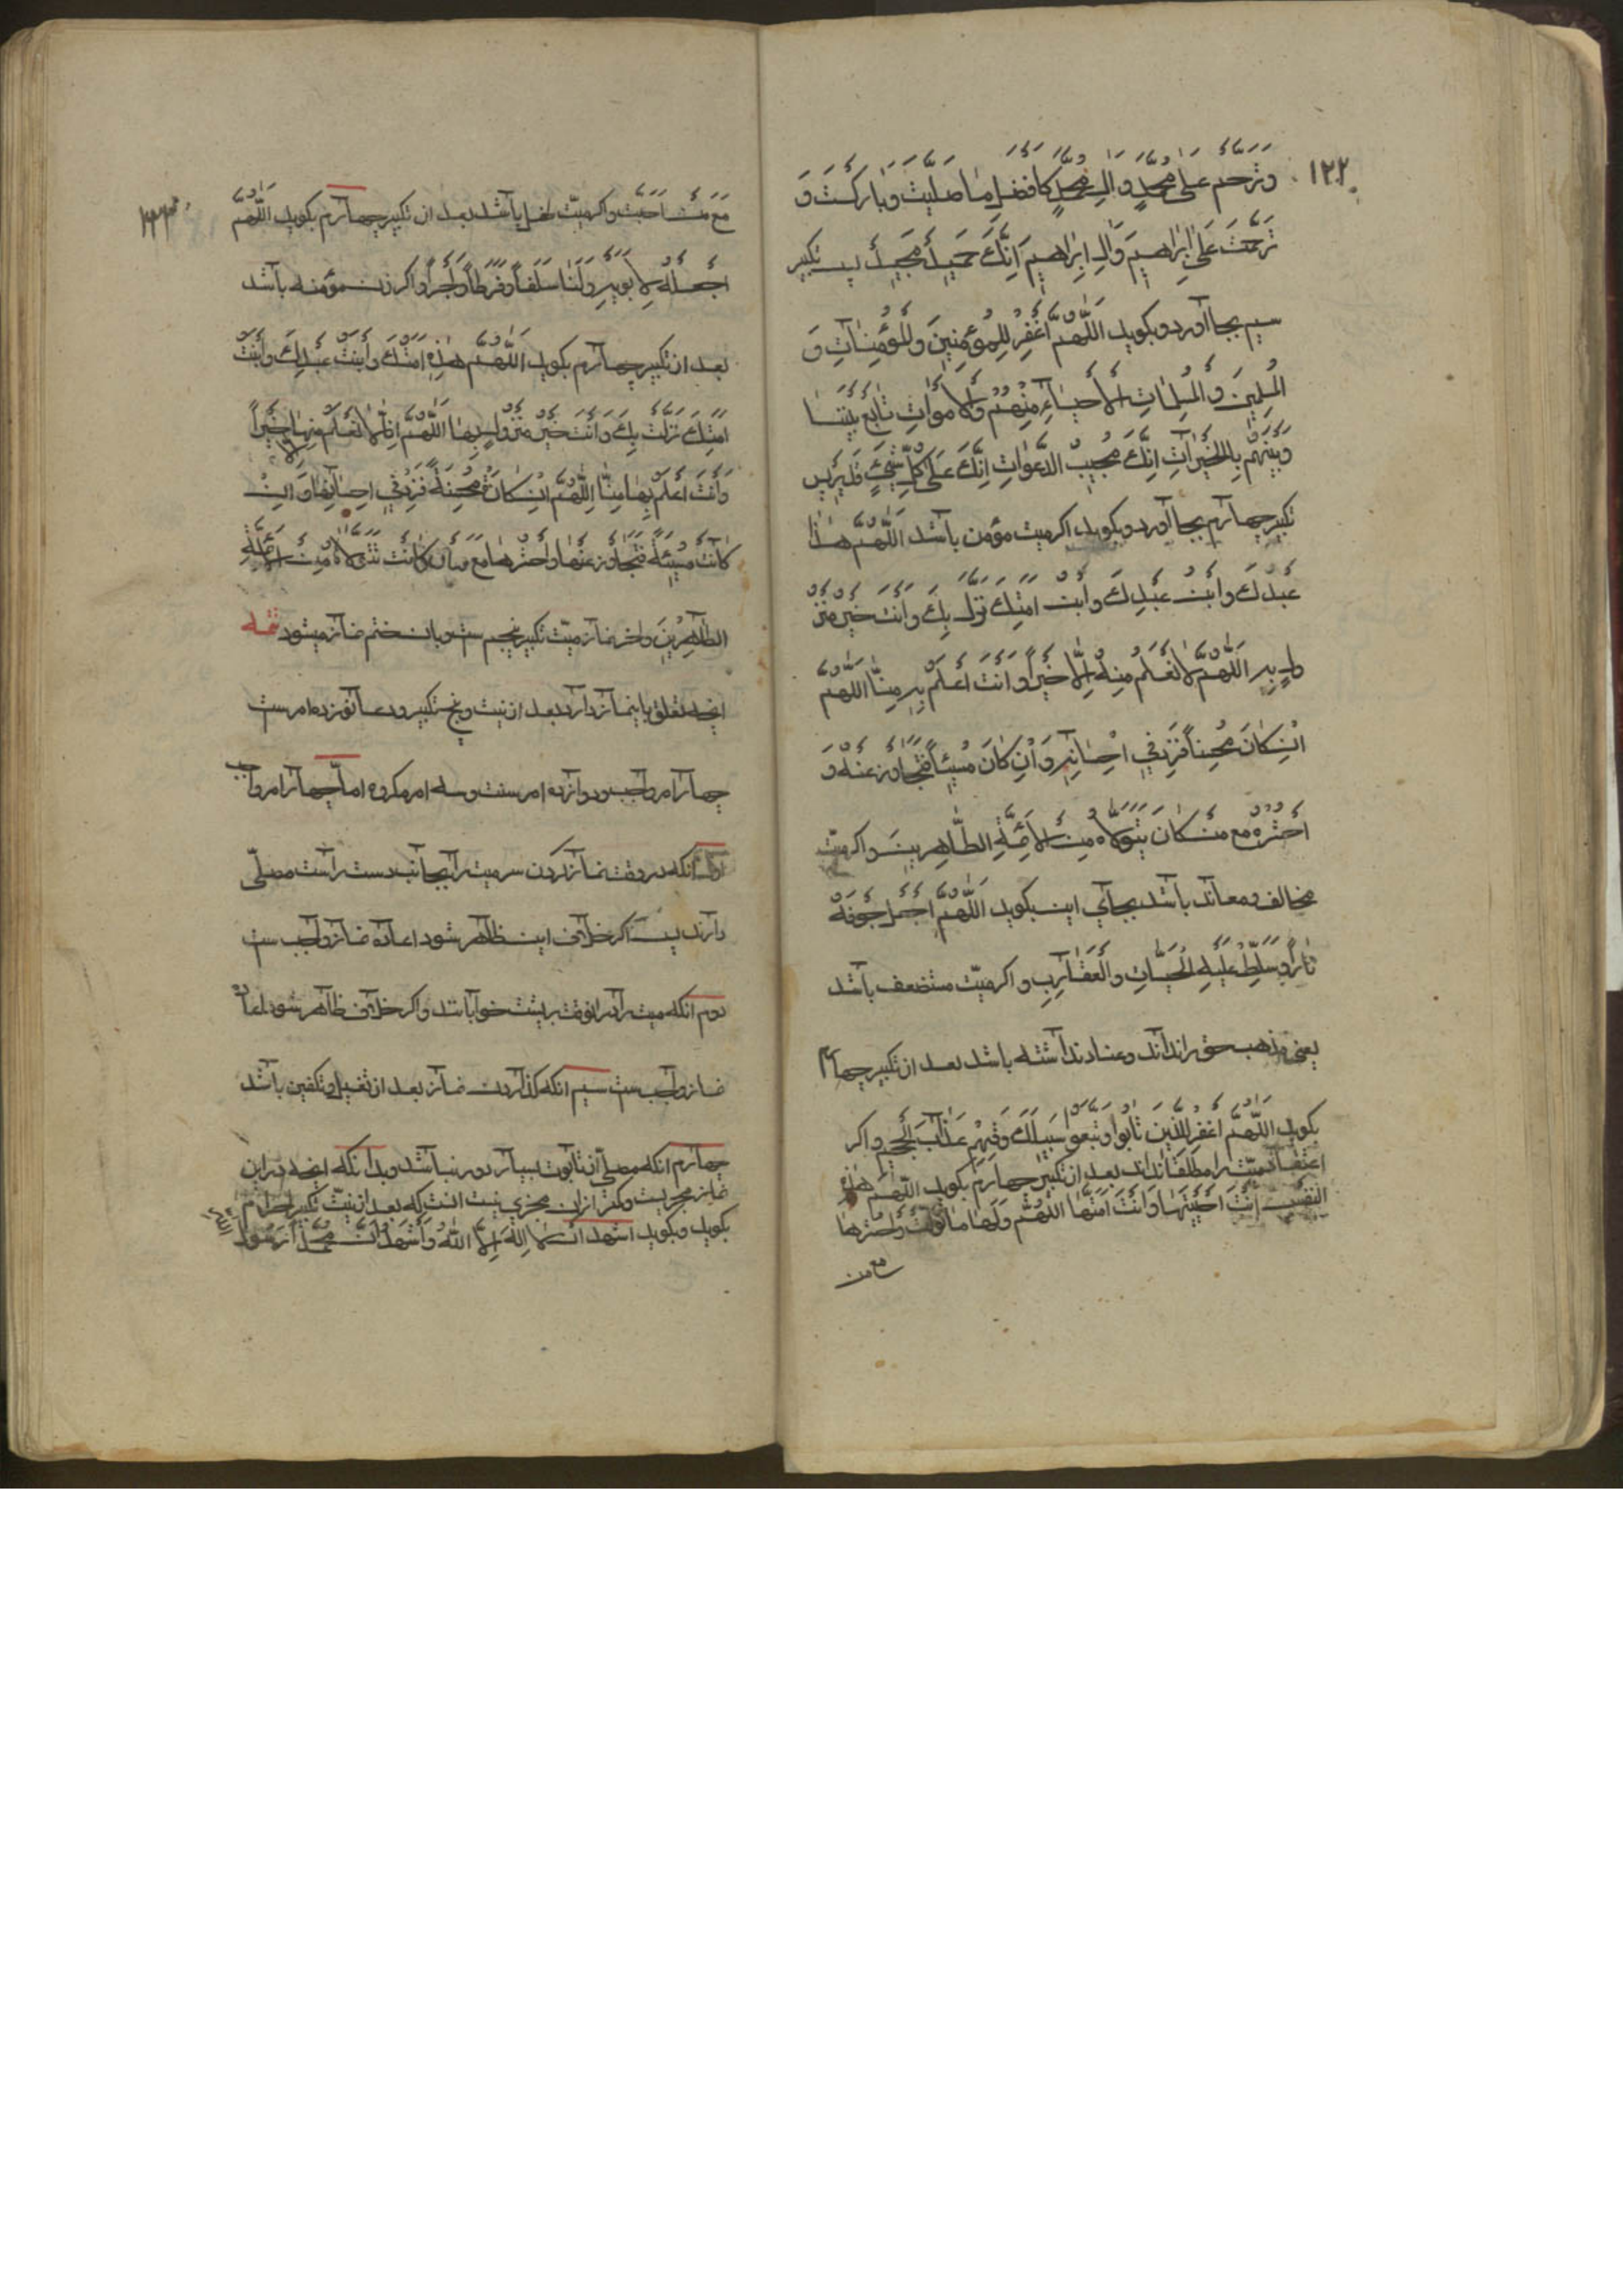 ١٢٢
وَتَرَحَّمْ عَلٰی مُحَمَّدٍ وَاٰلِ مُحَمَّدٍ كَاَفْضَلِ مٰا صَلَّيْتَ وَبٰارَكْتَ وَ
تَرَحَّمْتَ عَلٰی اِبْرٰاهِيمَ وَاٰلِ اِبْرٰاهِيمَ اِنَّكَ حَمِيدٌ مَجِيدٌ پس تكبير
سيم بجا آورد و بكويد اَللّٰهُمَّ اغْفِرْ لِلْمُؤْمِنِينَ وَالْمُؤْمِنٰاتِ وَ
الْمُسْلِمِينَ وَالْمُسْلِمٰاتِ اَلْاَحْيٰاءِ مِنْهُمْ وَالْاَمْوٰاتِ تٰابِعْ بَيْنَنٰا
وَبَيْنَهُمْ بِالْخَيْرٰاتِ اِنَّكَ مُجِيبُ الدَّعَوٰاتِ اِنَّكَ عَلٰی كُلِّ شَيْءٍ قَدِيرٌ پس
تكبير چهارم بجا آورد و بكويد اكر ميت مؤمن باشد اَللّٰهُمَّ هٰذٰا
عَبْدُكَ وَابْنُ عَبْدِكَ وَابْنُ اَمَتِكَ نَزَلَ بِكَ وَاَنْتَ خَيْرُ مَنْزُ
ولٍ بِهِ اَللّٰهُمَّ لٰا نَعْلَمُ مِنْهُ اِلّٰا خَيْراً وَاَنْتَ اَعْلَمُ بِهِ مِنّٰا اَللّٰهُمَّ
اِنْ كٰانَ مُحْسِناً فَزِدْ فِي اِحْسٰانِهِ وَاِنْ كٰانَ مُسِيئاً فَتَجٰاوَزْ عَنْهُ وَ
احْشُرْهُ مَعَ مَنْ كٰانَ يَتَوَلّٰاهُ مِنَ الْاَئِمَّةِ الطّٰاهِرِينَ و اكر ميت
مخالف و معاند باشد بجاي اين بكويد اَللّٰهُمَّ اجْعَلْ جَوْفَهُ
نٰاراً وَسَلِّطْ عَلَيْهِ الْحَيّٰاتِ وَالْعَقٰارِبِ و اكر ميت مستضعف باشد
يعني مذهب حق را نداند و عناد نداشته باشد بعد از تكبير چهارم
بكويد اَللّٰهُمَّ اغْفِرْ لِلَّذِينَ تٰابُوا وَتَّبَعُوا سَبِيلَكَ وَقِهِمْ عَذٰابَ الْجَحِيمِ و اكر
اعتقاد ميت را مطلقا نداند بعد از تكبير چهارم بكويد اَللّٰهُمَّ هٰذِهِ
النَّفْسُ اَنْتَ اَحْيَيْتَهٰا وَاَنْتَ اَمَتَّهٰا اَللّٰهُمَّ وَلِّهٰا مٰا تَوَلَّتْ وَاحْشُرْهٰا
مع من
مَعَ مَنْ اَحَبَّتْ و اكر ميت طفل باشد بعد از تكبير چهارم بكويد اَللّٰهُمَّ
اجْعَلْهُ لِاَبَوَيْهِ وَلَنٰا سَلَفاً وَفَرَطاً وَاَجْراً و اكر زن مؤمنه باشد
بعد از تكبير چهارم بكويد اَللّٰهُمَّ هٰذِهِ اَمَتُكَ وَابْنَتُ عَبْدِكَ وَابْنَتُ
اَمَتِكَ نَزَلَتْ بِكَ وَاَنْتَ خَيْرُ مَنْزُولٍ بِهٰا اَللّٰهُمَّ اِنّٰا لٰا نَعْلَمُ مِنْهٰا اِلّٰا خَيْراً
وَاَنْتَ اَعْلَمُ بِهٰا مِنّٰا اَللّٰهُمَّ اِنْ كٰانَتْ مُحْسِنَةً فَزِدْ فِي اِحْسٰانِهٰا وَاِنْ
كٰانَتْ مُسِيئَةً فَتَجٰاوَزْ عَنْهٰا وَاحْشُرْهٰا مَعَ مَنْ كٰانَتْ تَتَوَلّٰاهُ مِنَ الْاَئِمَّةِ
الطّٰاهِرِينَ و اخر نماز ميت تكبير پنجم ست و بان ختم نماز ميشود تتمه
انچه تعلق باين نماز دارد بعد از نيت و پنج تكبير و دعا نوزده امر ست
چهار امر واجب و دوازده امر سنت و سه امر مكروه اما چهار امر واجب
اول انكه در وقت نماز كردن سر ميت را بجانب دست راست مصلي
دارند پس اكر خلاف اين ظاهر شود اعاده نماز واجب ست
دوم انكه ميت را در انوقت بر پشت خوابانند و اكر خلاف ظاهر شود اعاده
نماز واجب ست سيم انكه كذاردن نماز بعد از تغسيل و تكفين باشد
چهارم انكه مصلي از تابوت بسيار دور نباشد و بدانكه انچه در اين
نماز مجزيست و كمتر از ان مجزي نيست انست كه بعد از نيت تكبير احرام
بكويد و بكويد اشهد اَنْ لٰا اِلٰهَ اِلّٰا اللّٰهُ وَاَشْهَدُ اَنَّ مُحَمَّداً رَسُولُ